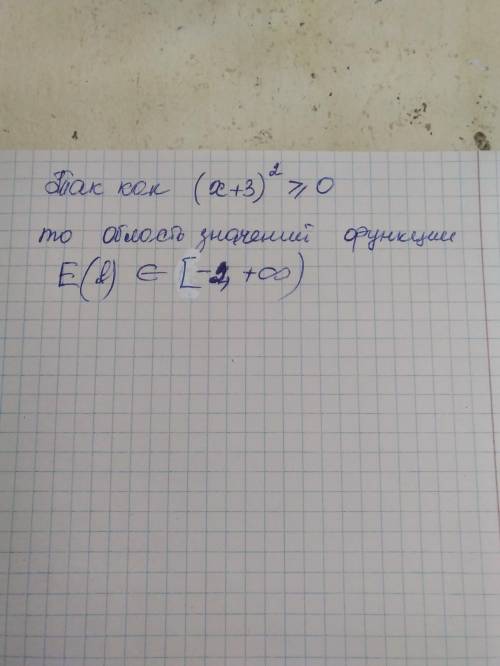 Так как (x+3)² ⩾ 0
то область значений функции
E(y) ∈ [-2, +∞)